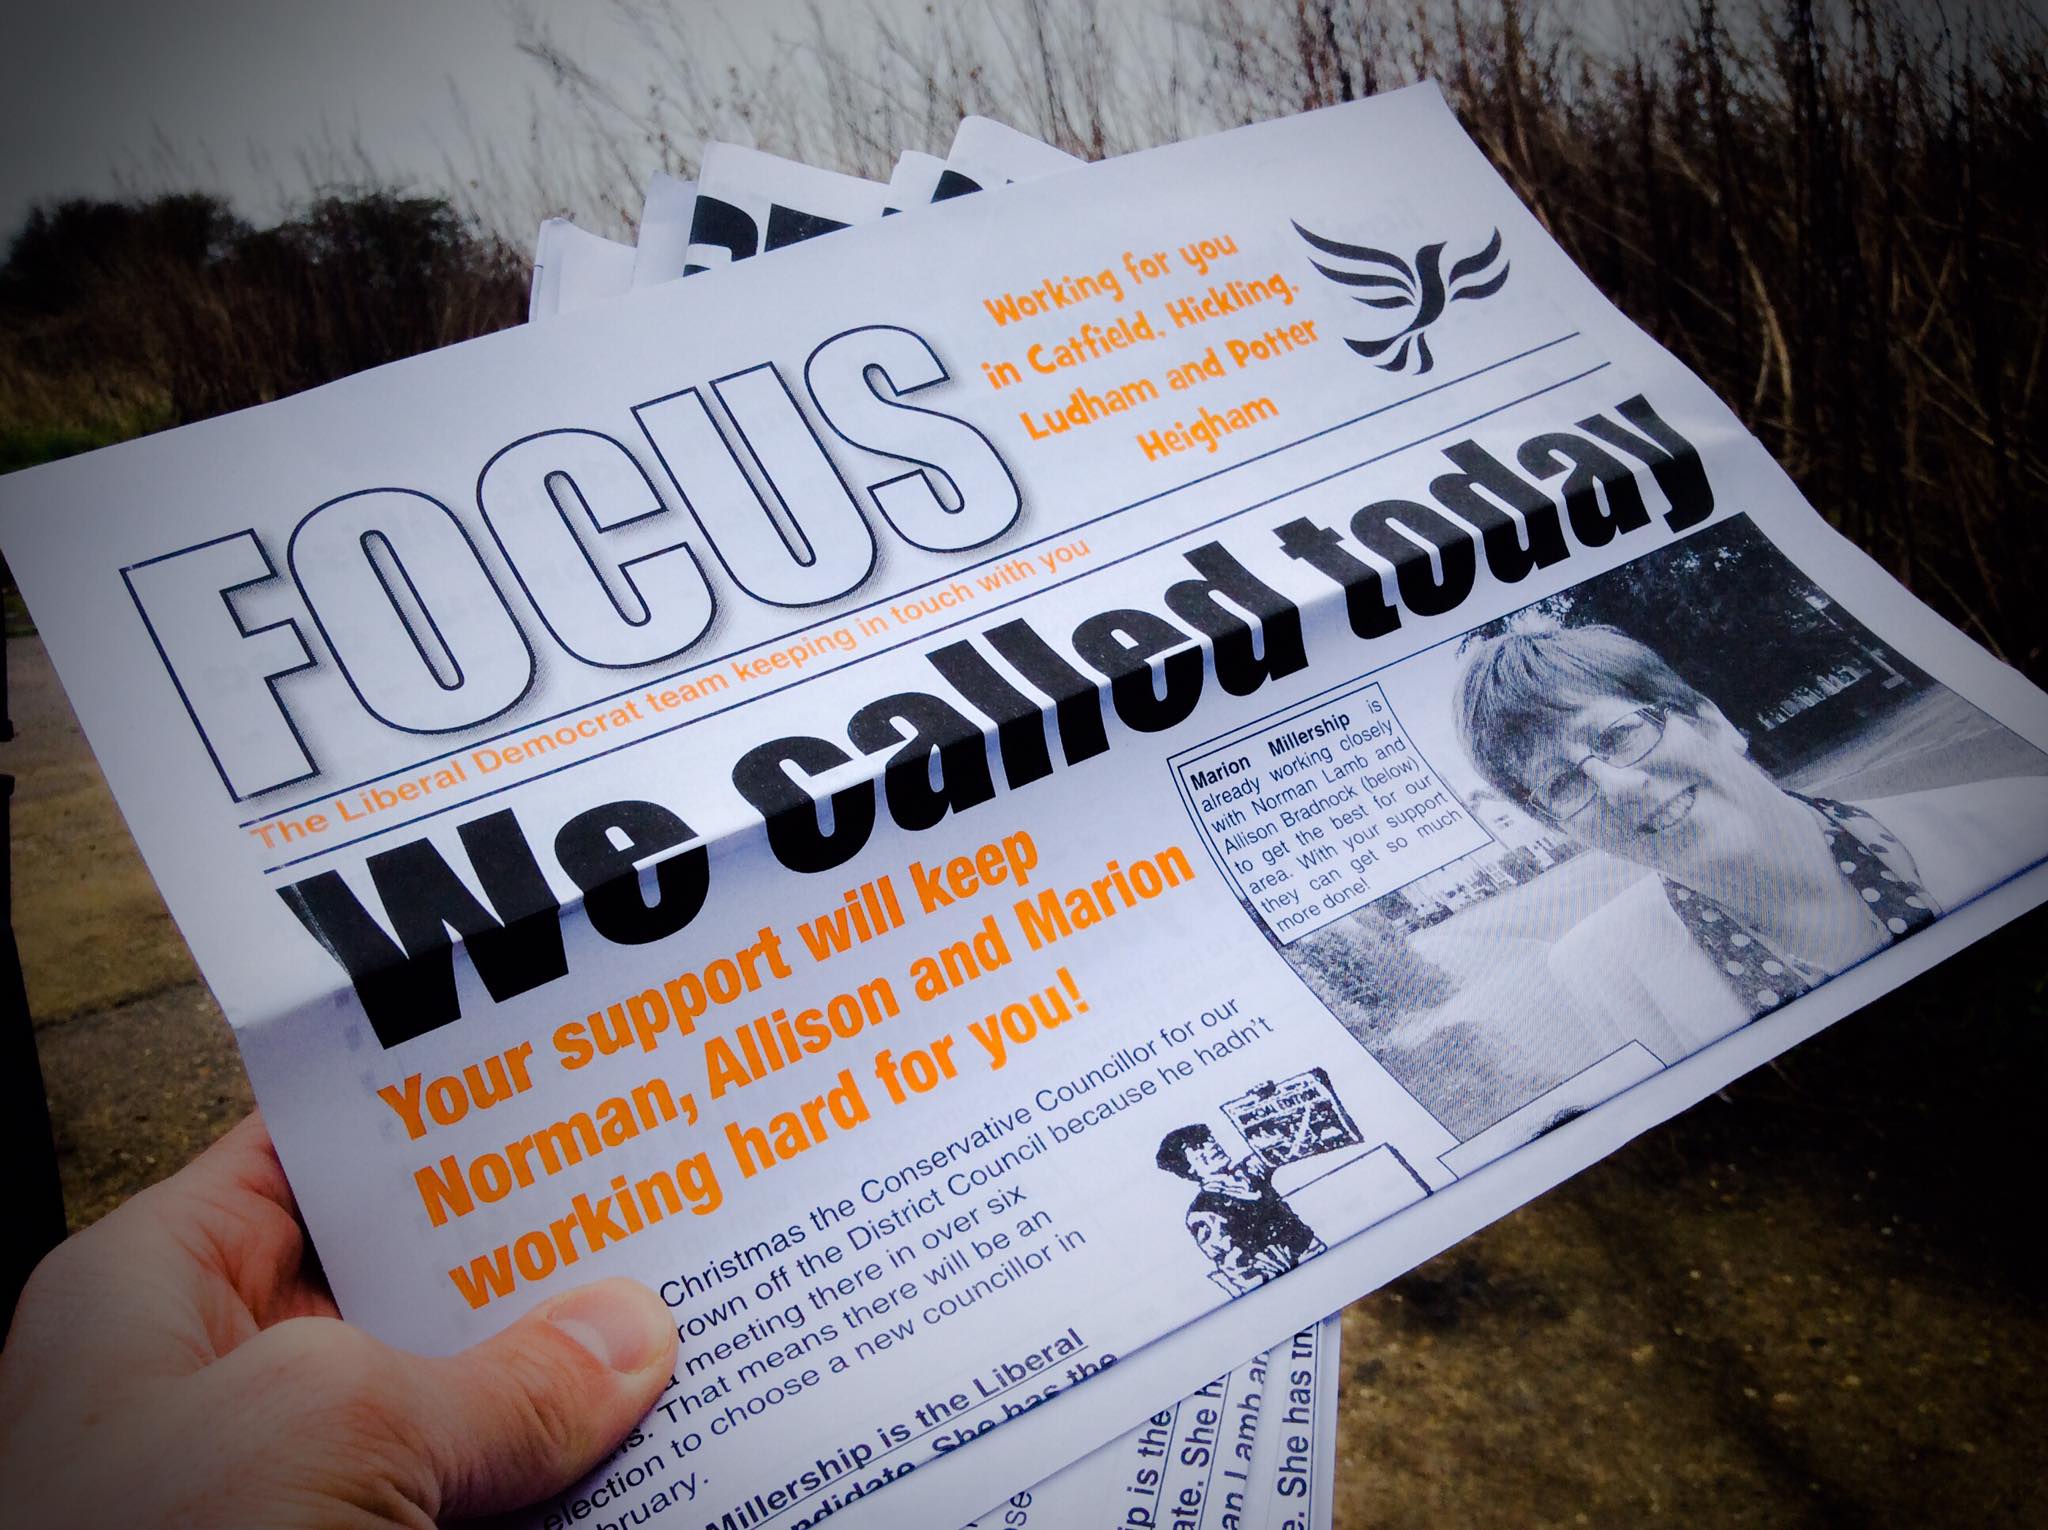 FOCUS
Working for you
in Catfield, Hickling,
Ludham and Potter
Heigham
The Liberal Democrat team keeping in touch with you
We called today
Your support will keep
Norman, Allison and Marion
working hard for you!
Marion Millership is
already working closely
with Norman Lamb and
Allison Bradnock (below)
to get the best for our
area. With your support
they can get so much
more done!
Christmas the Conservative Councillor for our
rown off the District Council because he hadn't
a meeting there in over six
That means there will be an
election to choose a new councillor in
bruary.
SPECIAL EDITION
Millership is the Liberal
ndidate. She has the
is the
ate. She h
an Lamb an
e. She has th